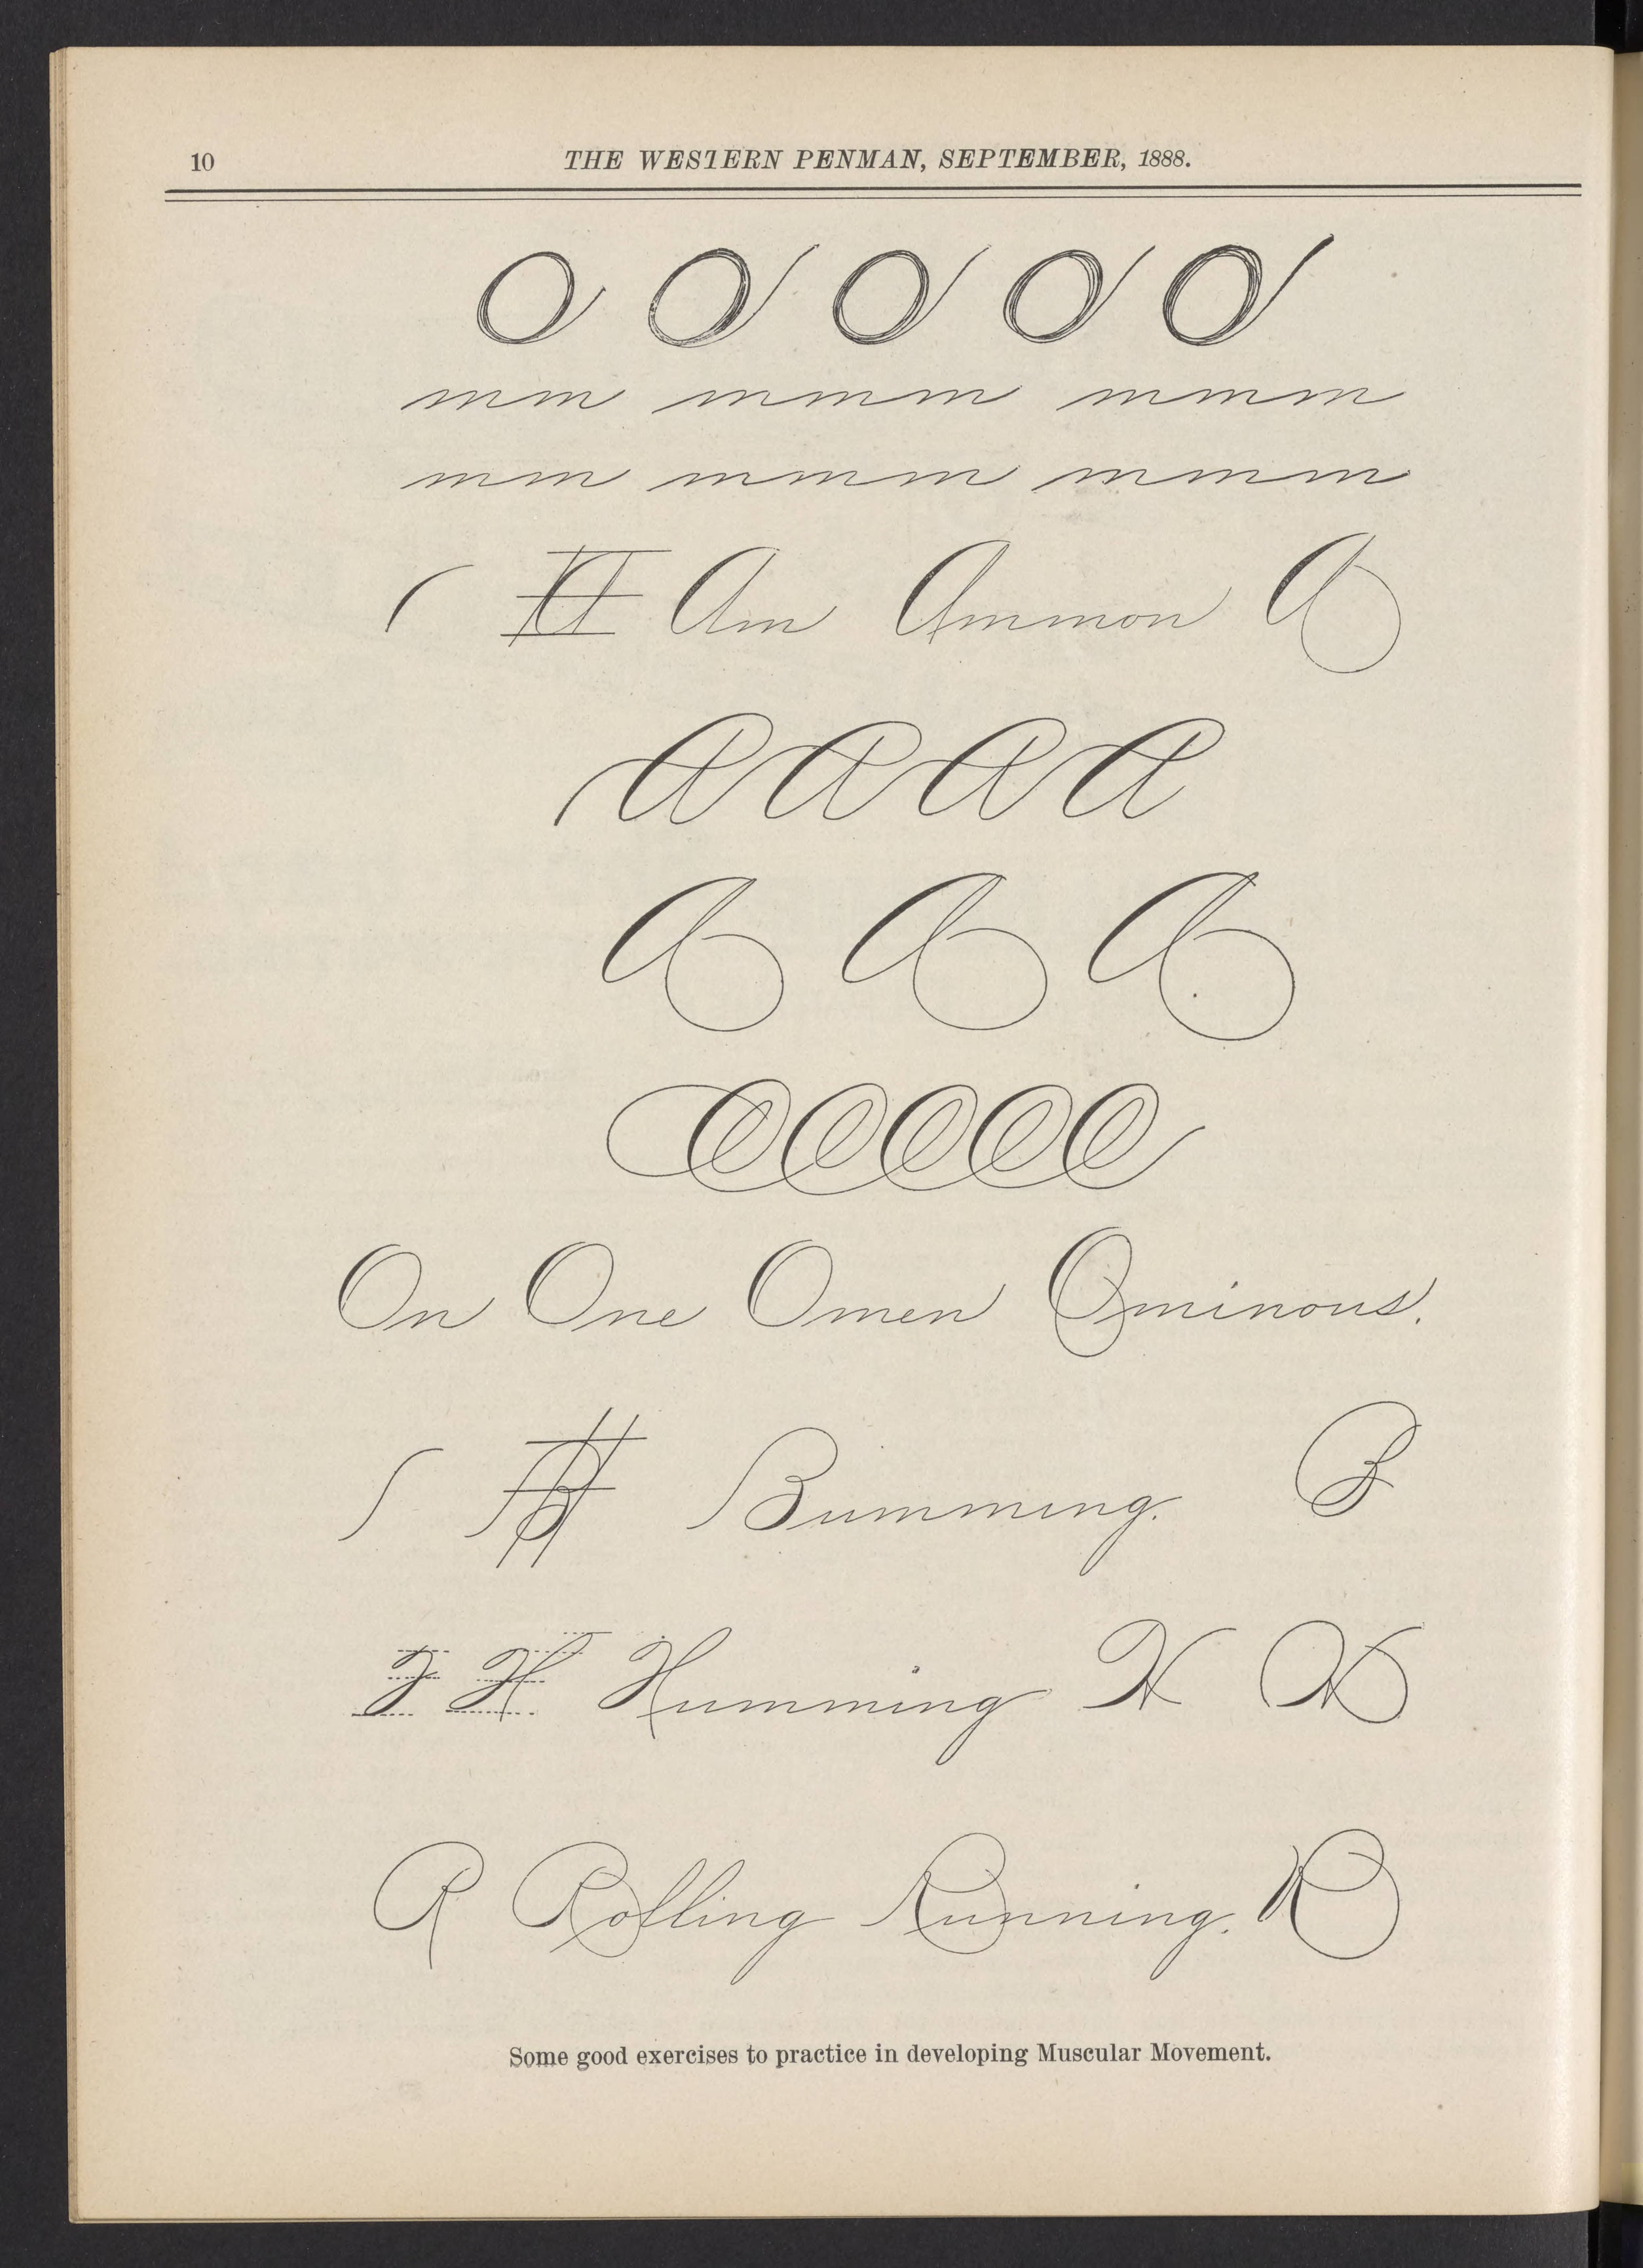 10 THE WESTERN PENMAN, SEPTEMBER, 1888.
O O O O O
mm mmm mmm
mm mmm mmm
A Am Ammon A
A A A A
A A A
O O O O O
On One Omen Ominous.
B Bumming. B
H Humming H H
R Rolling Running. R
Some good exercises to practice in developing Muscular Movement.